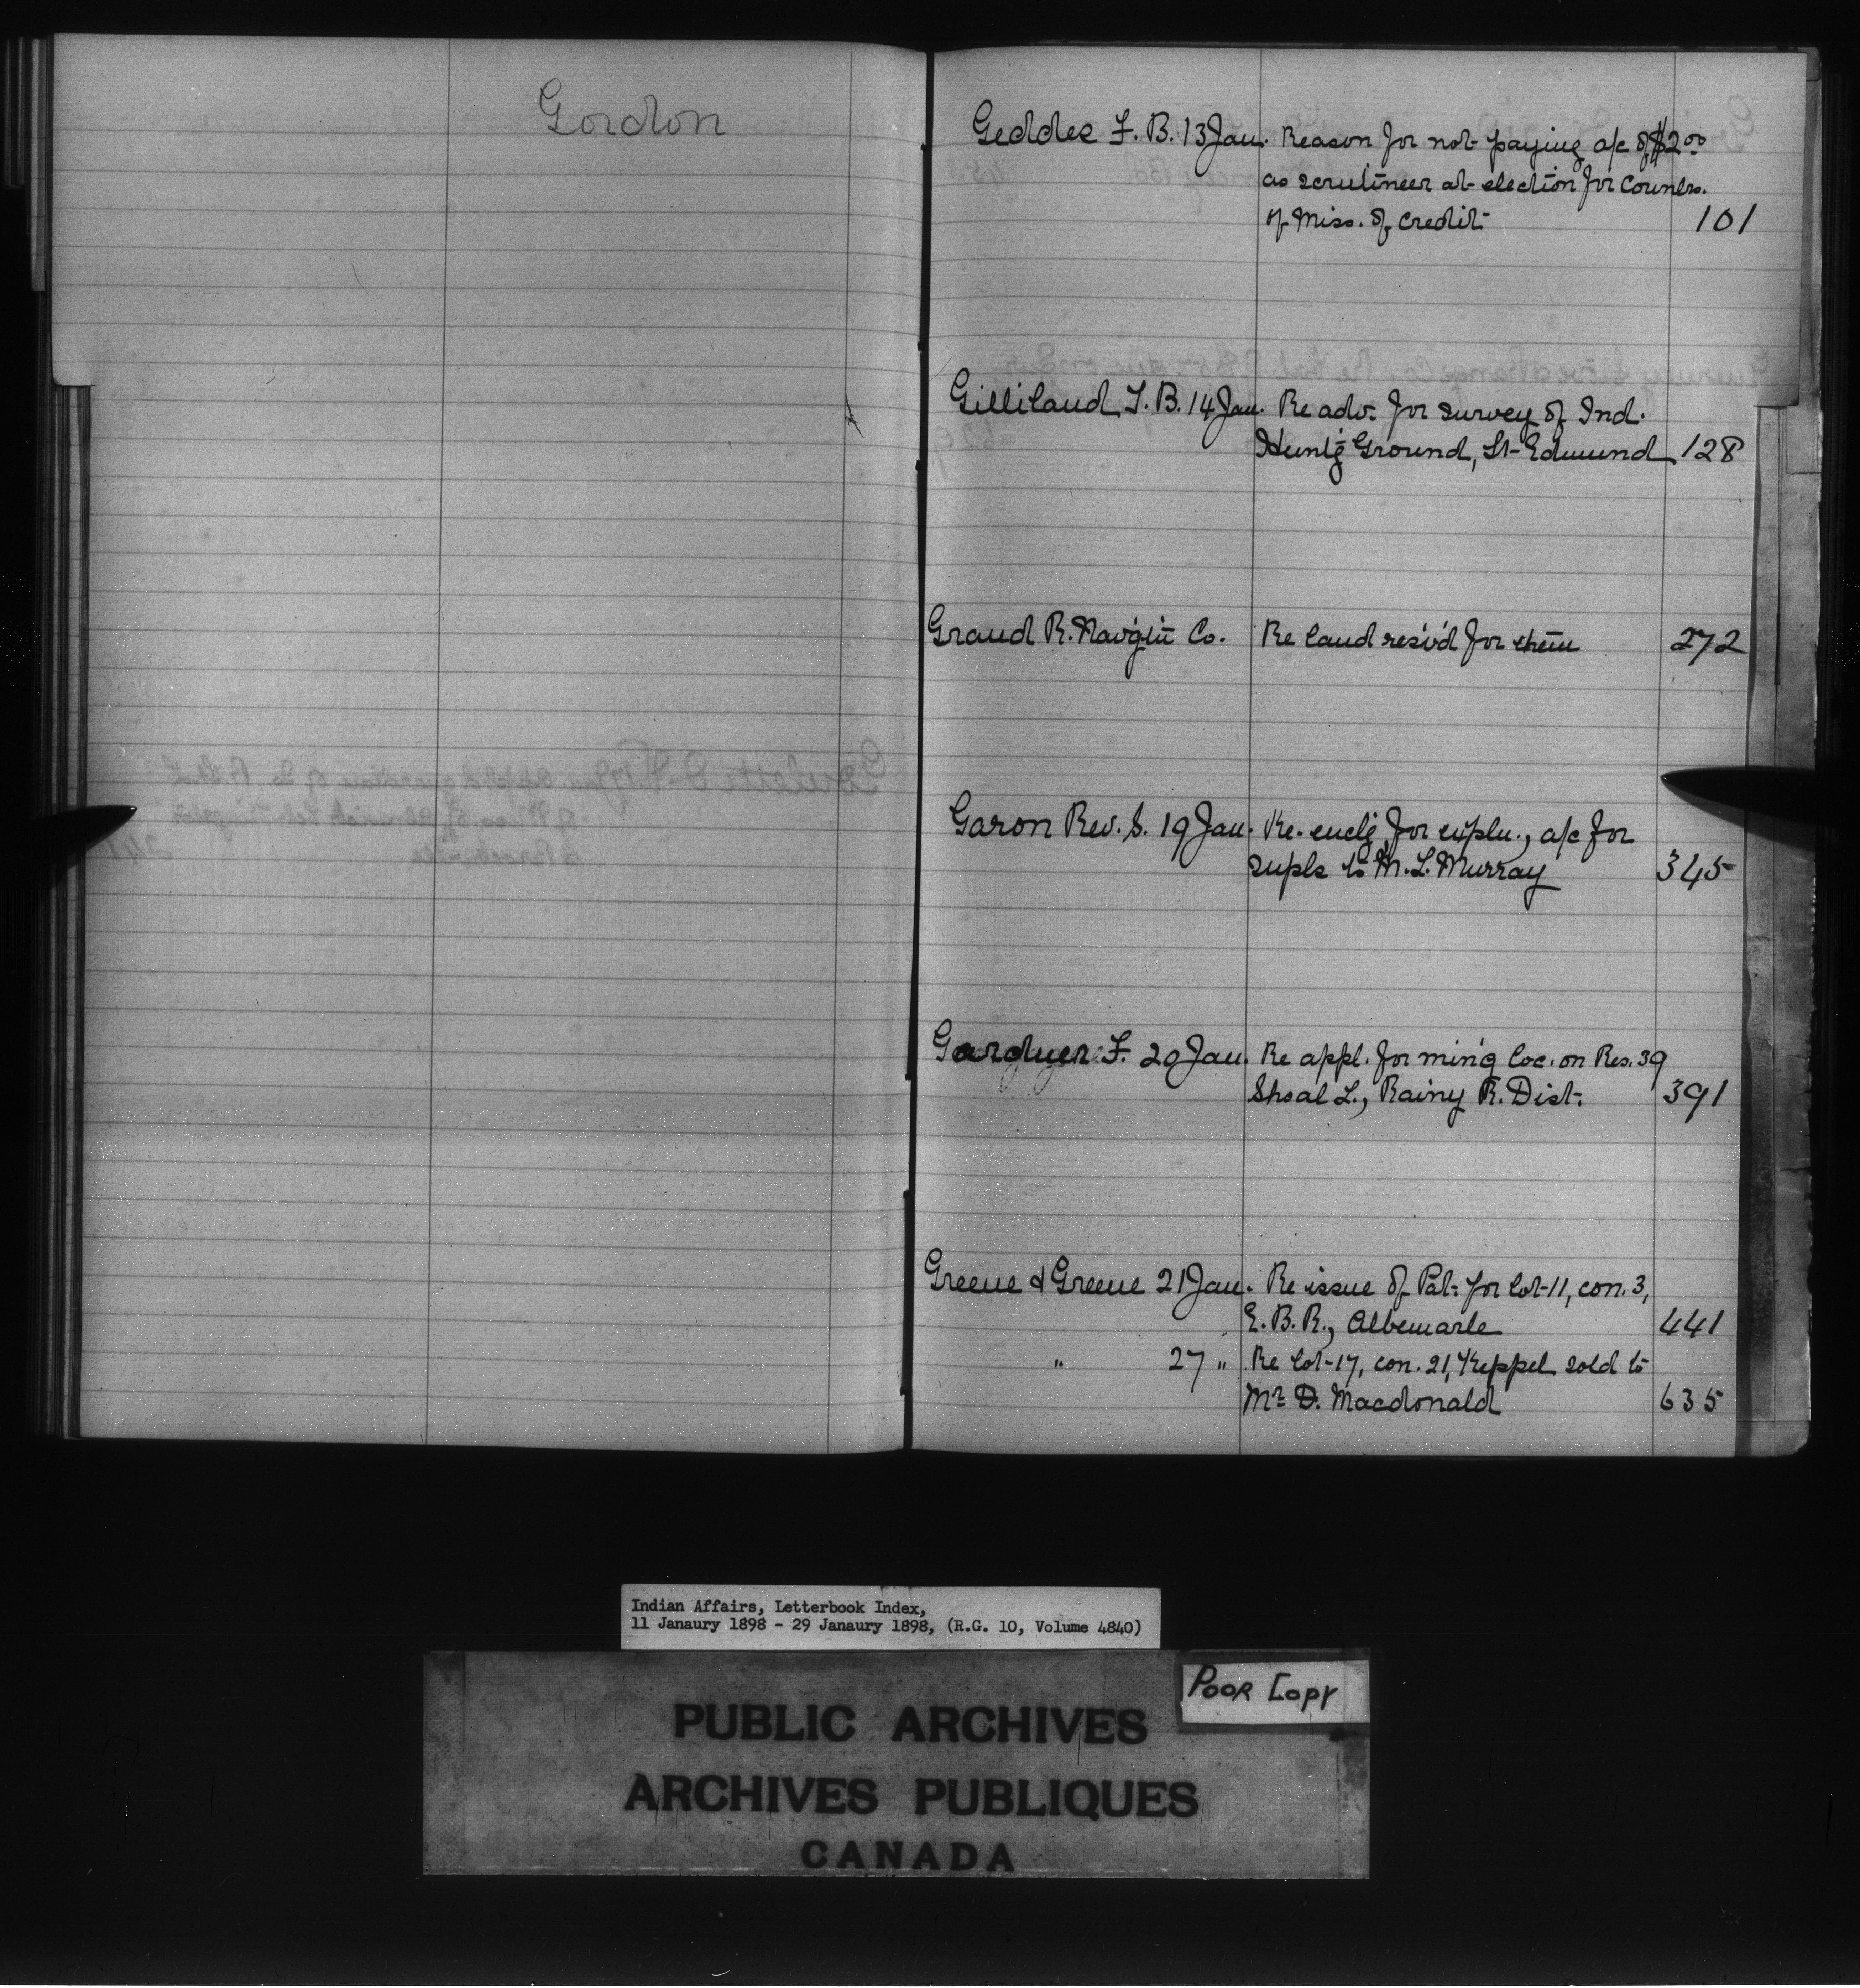 Gordon
Geddes F. B. 13 Jan. Reason for not paying a/c of $2.00
as scrutineer at election for Counlrs.
of Miss. of Credit 101
Gilliland T. B. 14 Jan. Re adv. for survey of Ind.
Hunt'g Ground, St Edmund 128
Grand R. Navig'tn Co. Re land res'v'd for them 272
Garon Rev. S. 19 Jan. Re-encl'g for expln., a/c for
supls to M. L. Murray 345
Gardner F. 20 Jan. Re appl. for min'g loc. on Res. 39
Shoal L., Rainy R. Dist. 391
Greene & Greene 21 Jan. Re issue of Pat. for lot 11, con. 3,
E. B. R., Albemarle 441
" 27 " Re lot 17, con. 21, Keppel sold to
Mr D. Macdonald 635
Indian Affairs, Letterbook Index,
11 Janaury 1898 - 29 Janaury 1898, (R.G. 10, Volume 4840)
POOR COPY
PUBLIC ARCHIVES
ARCHIVES PUBLIQUES
CANADA